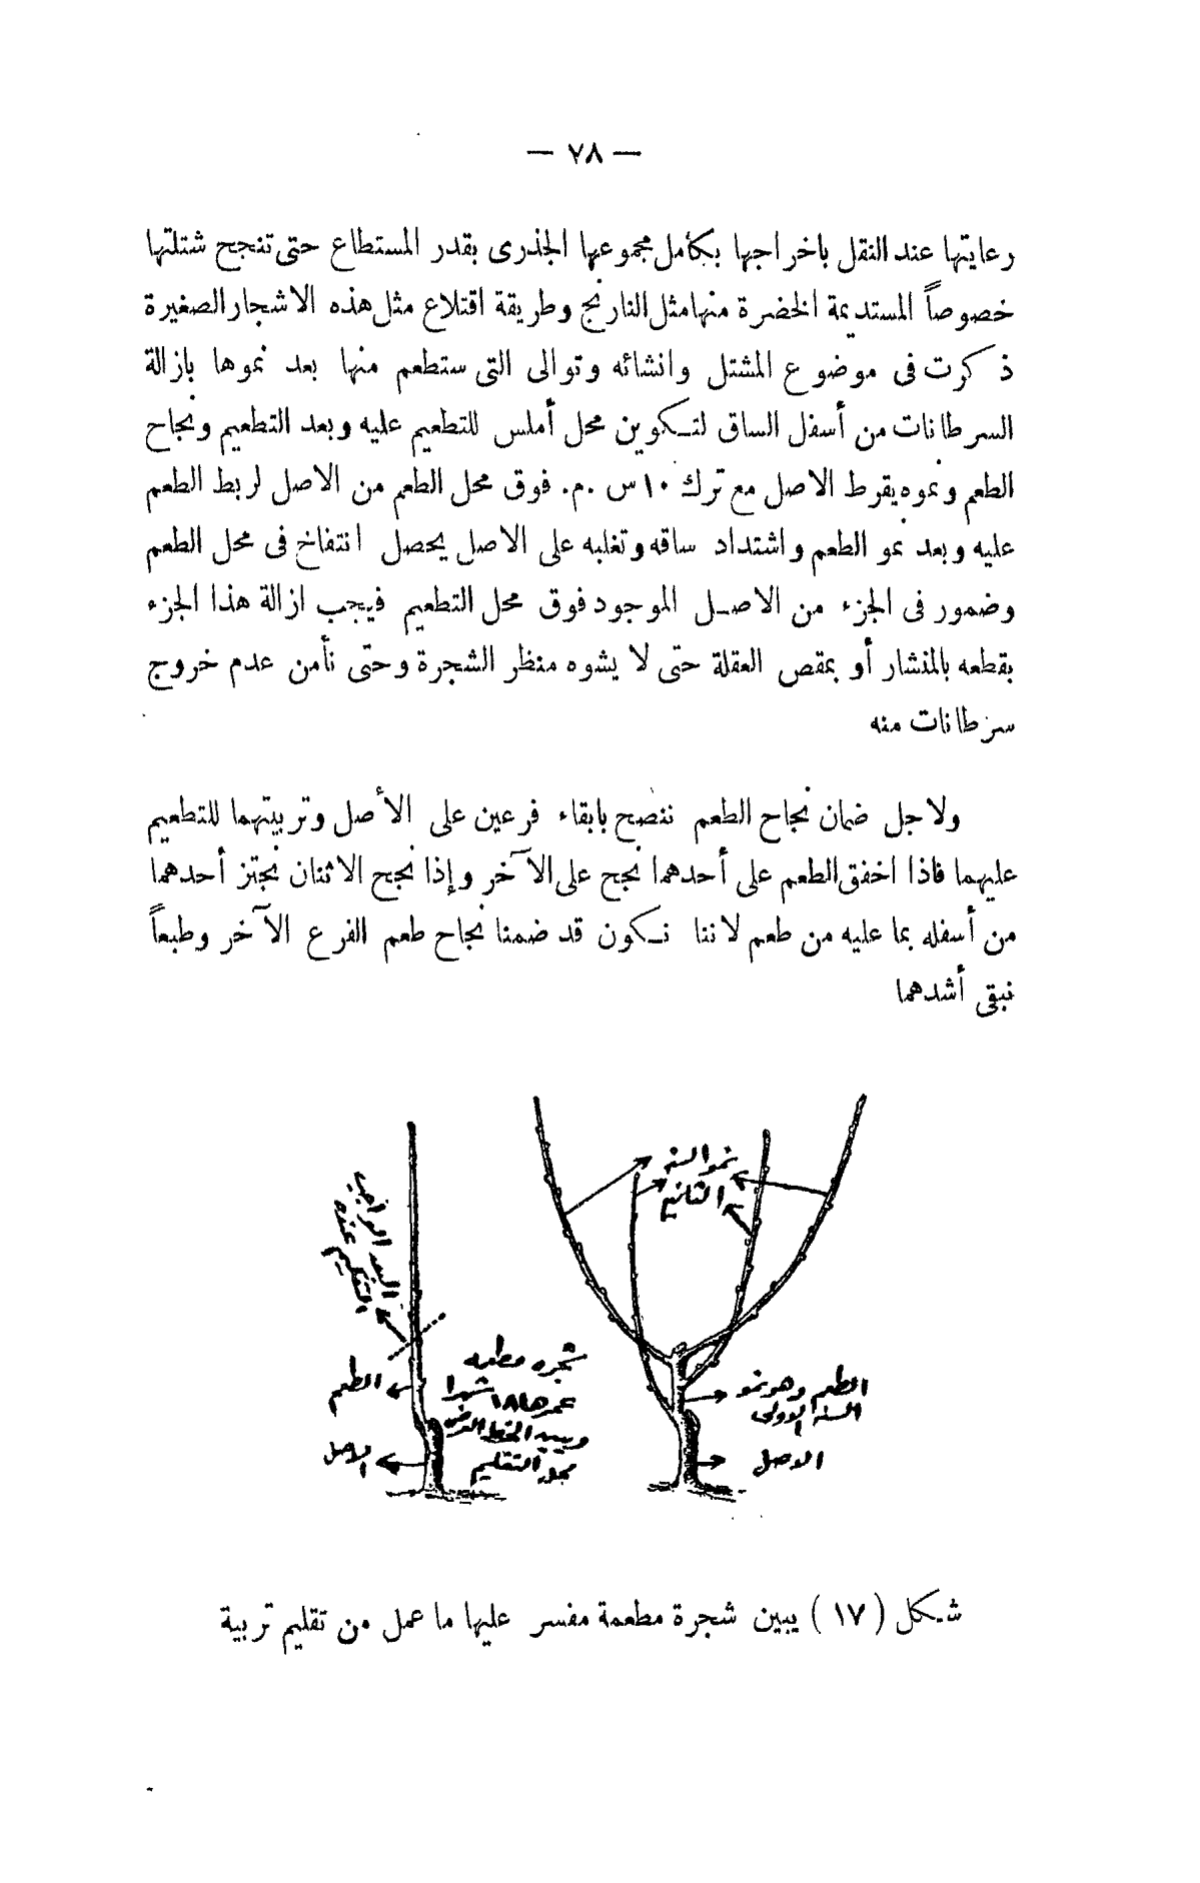 — ٧٨ —
رعايتها عند النقل باخراجها بكامل مجموعها الجذرى بقدر المستطاع حتى تنجح شتلتها
خصوصاً المستديمة الخضرة منها مثل النارنج وطريقة اقتلاع مثل هذه الاشجار الصغيرة
ذكرت فى موضوع المشتل وانشائه وتوالى التى ستطعم منها بعد نموها بازالة
السرطانات من أسفل الساق لتكوين محل أملس للتطعيم عليه وبعد التطعيم ونجاح
الطعم ونموه يقرط الاصل مع ترك ١٠ س .م. فوق محل الطعم من الاصل لربط الطعم
عليه وبعد نمو الطعم واشتداد ساقه وتغلبه على الاصل يحصل انتفاخ فى محل الطعم
وضمور فى الجزء من الاصل الموجود فوق محل التطعيم فيجب ازالة هذا الجزء
بقطعه بالمنشار أو بمقص العقلة حتى لا يشوه منظر الشجرة وحتى نأمن عدم خروج
سرطانات منه
ولاجل ضمان نجاح الطعم ننصح بابقاء فرعين على الأصل وتربيتهما للتطعيم
عليهما فاذا اخفق الطعم على أحدهما نجح على الآخر وإذا نجح الاثنان نجتز أحدهما
من أسفله بما عليه من طعم لاننا نكون قد ضمنا نجاح طعم الفرع الآخر وطبعاً
نبقى أشدهما
نمو السنه
الثانيه
البعد الواجب
التقليم عنده
الطعم
الاصل
شجره مطعمه
عمرها ١٨ شهرا
ويبين الخط العرضى
محل التقليم
الطعم وهو نمو
السنه الاولى
الاصل
شكل ( ١٧ ) يبين شجرة مطعمة مفسر عليها ما عمل من تقليم تربية